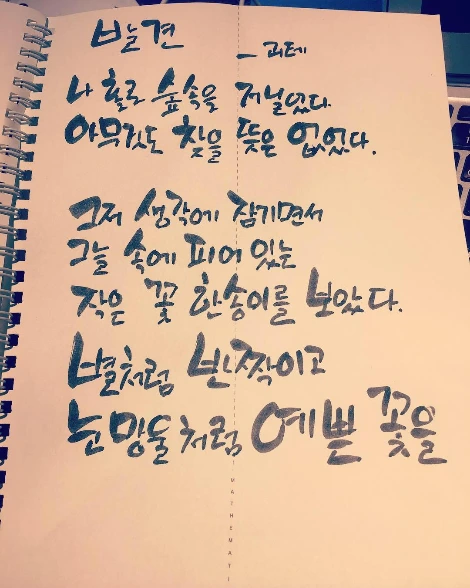 발견
- 괴테
나 홀로 숲 속을 거닐었다.
아무것도 찾을 뜻은 없었다.
그저 생각에 잠기면서
그늘 속에 피어 있는
작은 꽃 한송이를 보았다.
별처럼 반짝이고
눈망울처럼 예쁜 꽃을
MATHEMATI